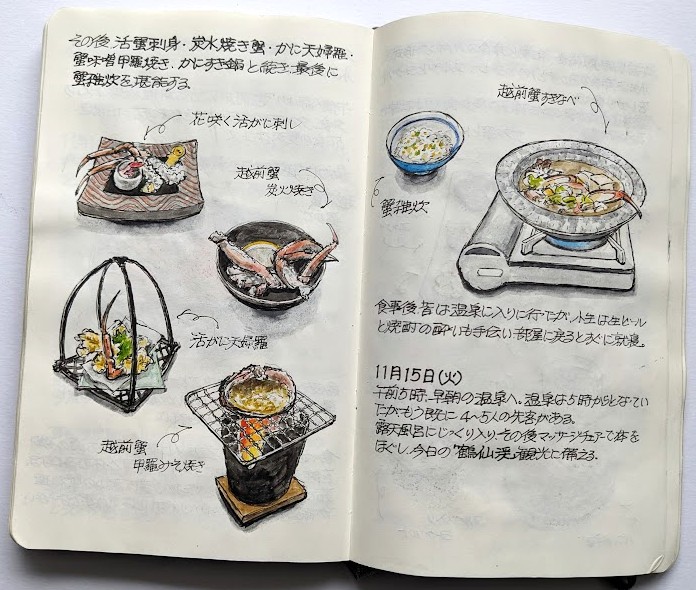 その後、活蟹刺身・炭火焼き蟹・かに天婦羅・
蟹味噌甲羅焼き、かにすき鍋と続き、最後に
蟹雑炊を堪能する。
花咲く活がに刺し
越前蟹
炭火焼き
活がに天婦羅
越前蟹
甲羅みそ焼き
越前蟹すきなべ
蟹雑炊
食事後、皆は温泉に入りに行ったが、小生は生ビール
と焼酎の酔いも手伝い部屋に戻るとすぐに就寝。
11月15日(火)
午前5時、早朝の温泉へ。温泉は5時からとなってい
たがもう既に4~5人の先客がある。
露天風呂にじっくり入り、その後マッサージチェアで体を
ほぐし、今日の"鶴仙渓"観光に備える。